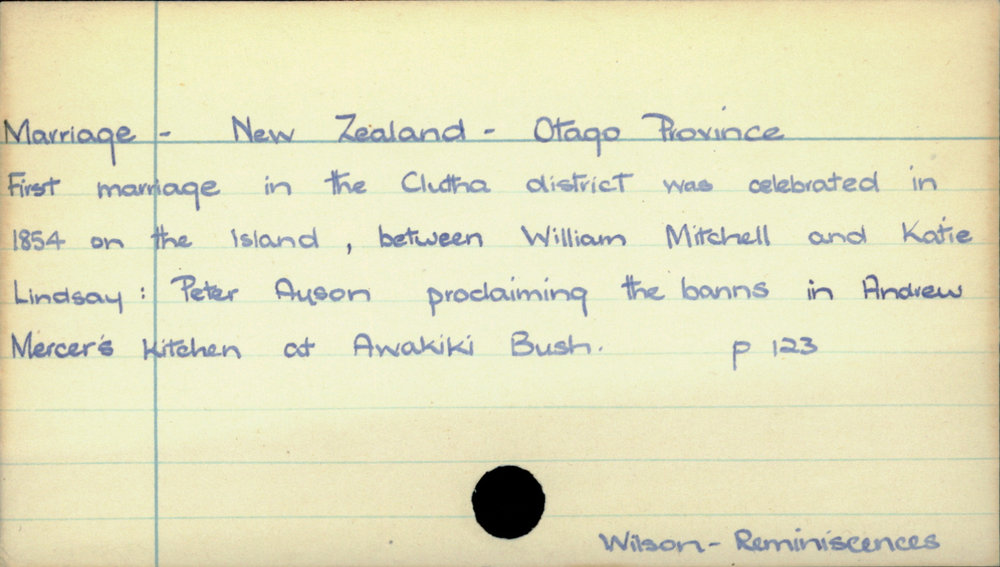 Marriage - New Zealand - Otago Province
First marriage in the Clutha district was celebrated in
1854 on the Island , between William Mitchell and Katie
Lindsay : Peter Ayson proclaiming the banns in Andrew
Mercer's kitchen at Awakiki Bush. p 123
Wilson - Reminiscences